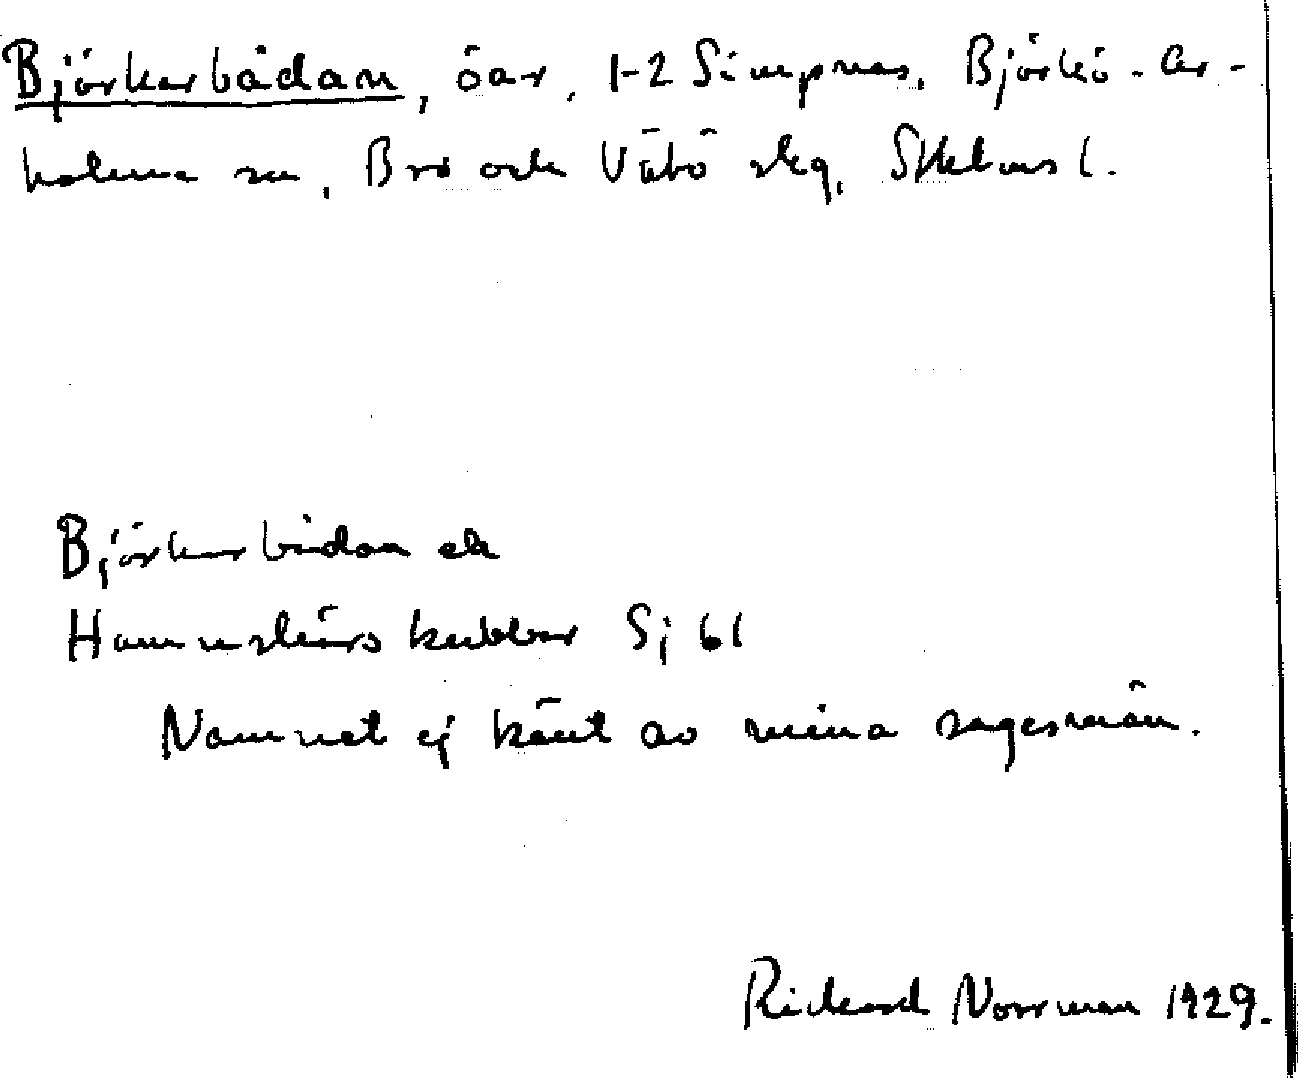 Björkarbådan, öar, 1-2 Simpnäs, Björkö-Ar-
holma sn, Bro och Vätö skg, Sthlms l.
Björkarbådan el
Hamnskärs kubbar Sj 61
Namnet ej känt av mina sagesmän.
Rickard Norrman 1929.